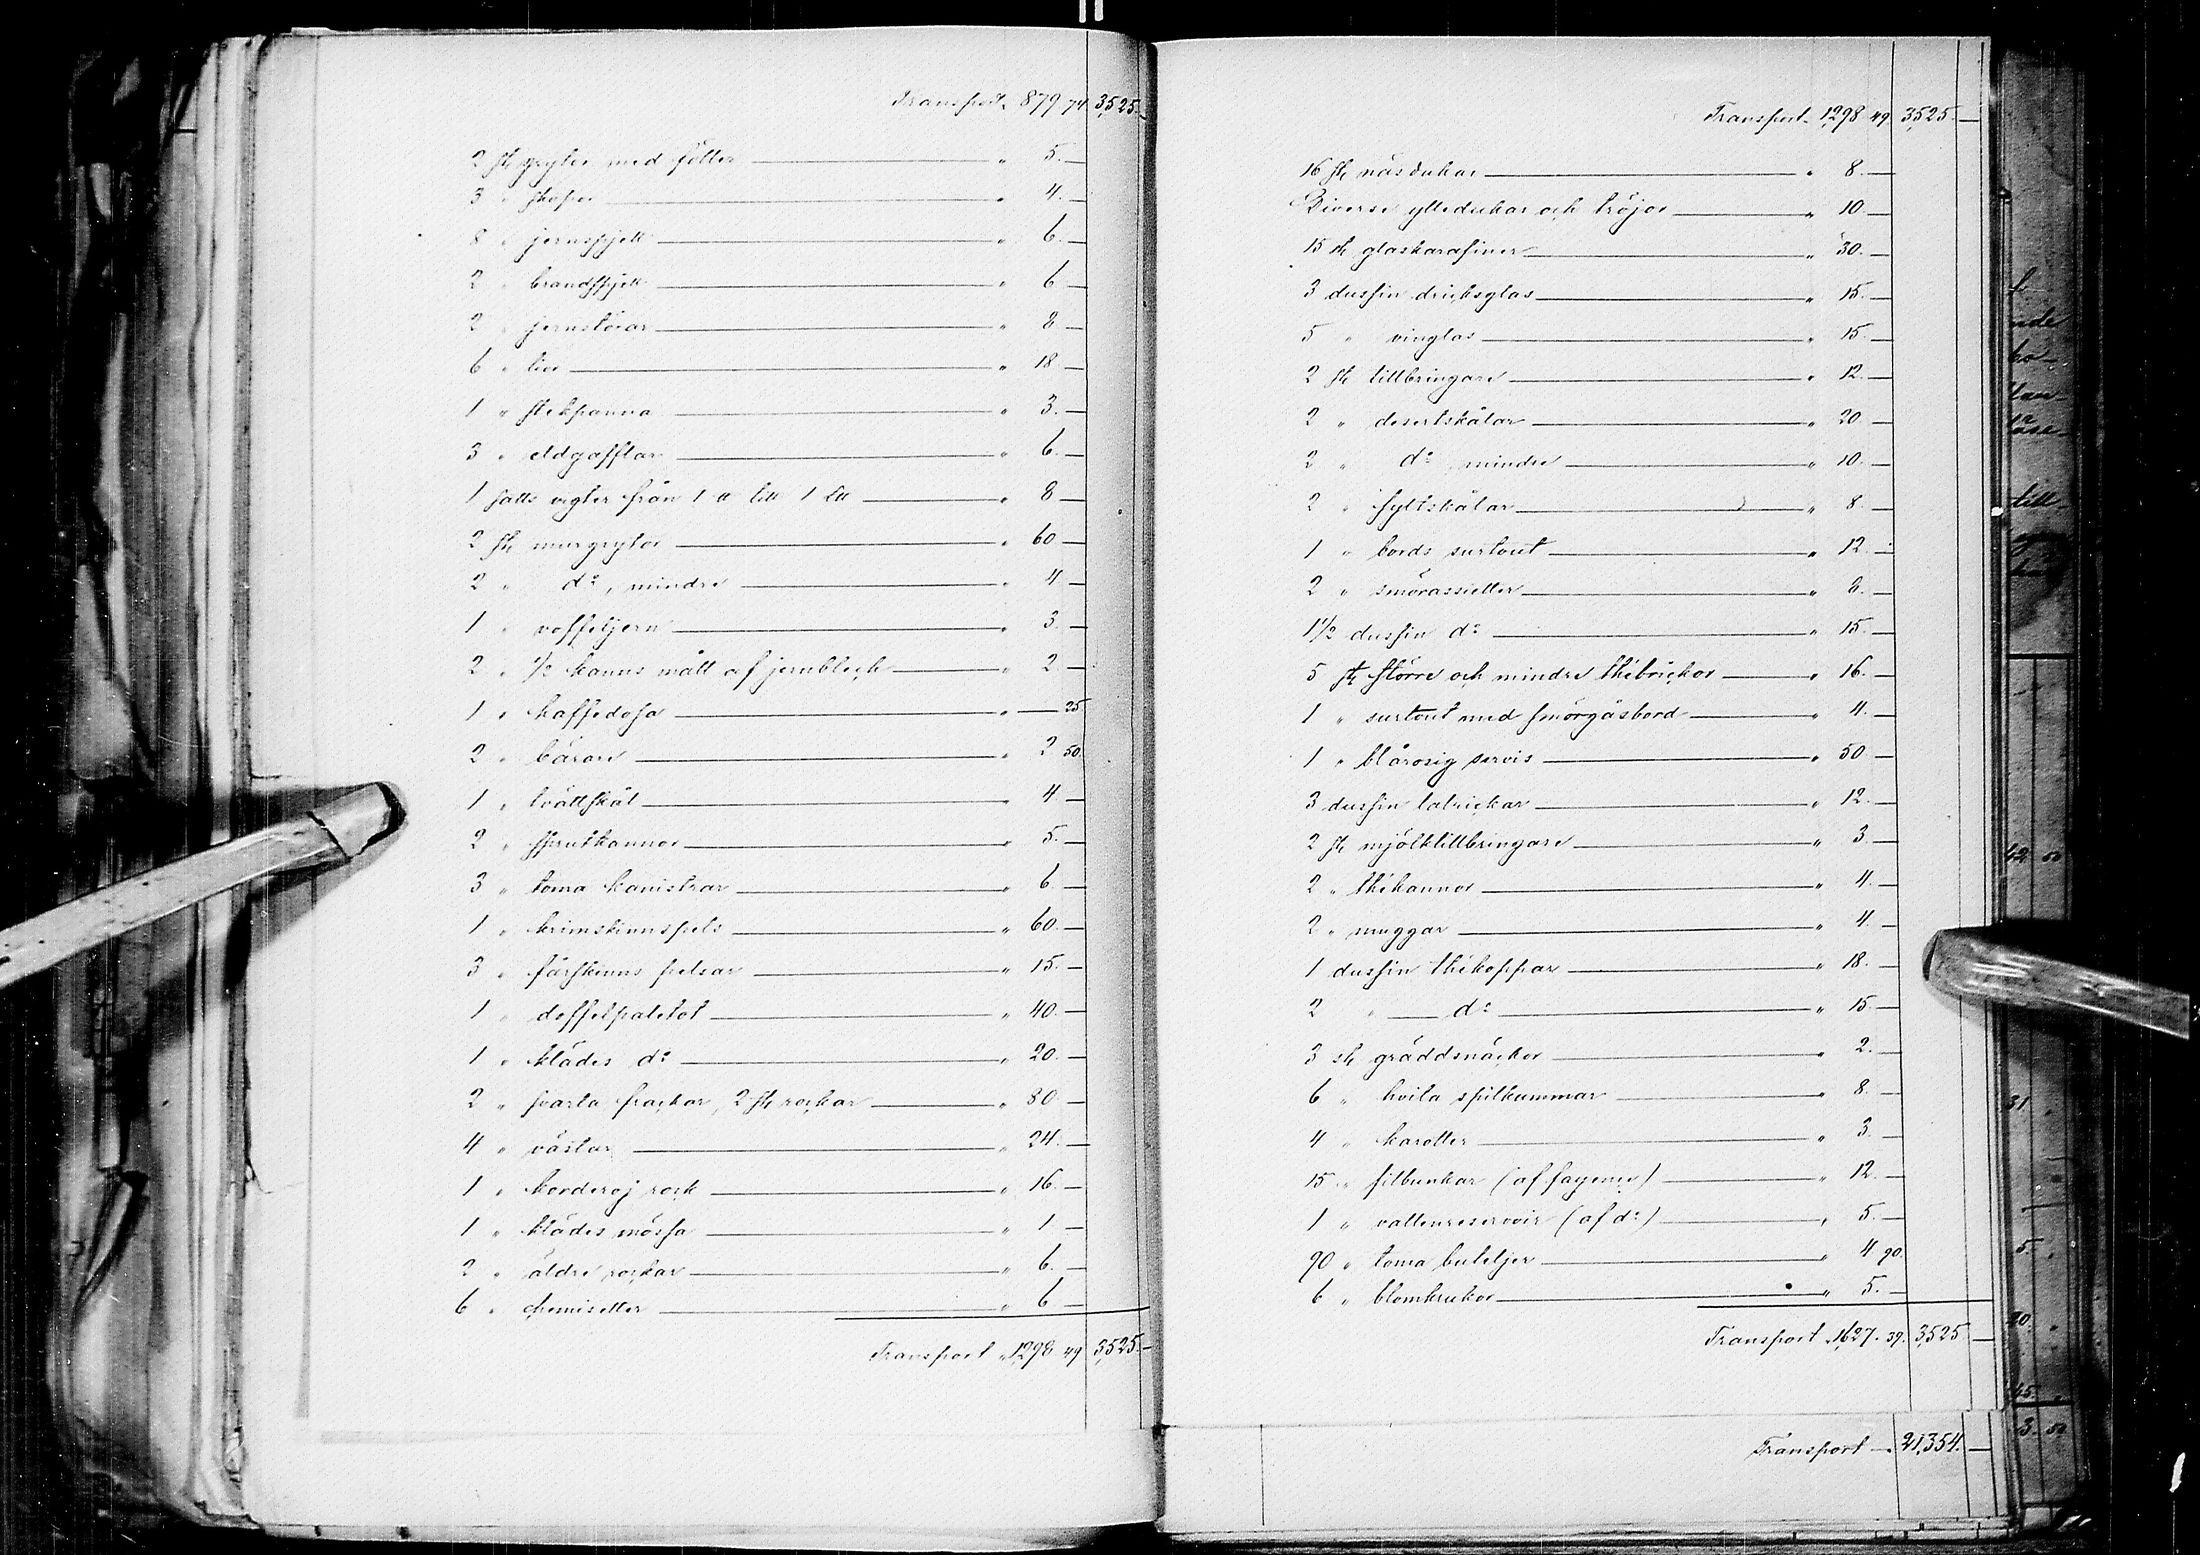 Transport " 879 74 3,525. —
2 st grytor med fötter " 5. —
3 " skopor " 4. —
8 " jernspjell " 6. —
2 " brandspjell " 6 —
2 " jernstörar " 8 —
6 " liar " 18 —
1 " stekpanna " 3. —
3 " eldgafflar " 6. —
1 satts vigter från 1 ℔ till 1 L℔ " 8 —
2 st murgrytor " 60 —
2 " d:o, mindre " 4 —
1 " voffeljern " 3. —
2 " 1/2 kanns mått af jernbleck " 2 —
1 " kaffedosa " — 25
2 " bärare " 2 50.
1 " tvättskål " 4 —
2 " sprutkannor " 5. —
3 " toma kanistrar " 6. —
1 " krimskinnspels " 60. —
3 " fårskinns pelsar " 15. —
1 " doffelpaletot " 40. —
1 " klädes d:o " 20. —
2 " svarta frackar, 2 st rockar " 80 —
4 " västar " 24. —
1 " korderoj rock " 16. —
1 " klädes mössa " 1 —
2 " äldre rockar " 6. —
6 " chemisetter " 6 —
Transport " 1,298 49 3,525. —
Transport " 1,298 49. 3,525. —
16 st näsdukar " 8. —
Diverse ylledukar och tröjor " 10. —
15 st glaskarafiner " 30. —
3 dussin dricksglas " 15. —
5 " vinglas " 15. —
2 st tillbringare " 12. —
2 " desertskålar " 20. —
2 " d:o mindre " 10. —
2 " syltskålar " 8. —
1 " bords surtout " 12. —
2 " smörassietter " 8. —
1 1/2 dussin d:o " 15. —
5 st större och mindre thebrickor " 16. —
1 " surtout med smörgåsbord " 4. —
1 " blårosig servis " 50 —
3 dussin talrickar " 12. —
2 st mjölktillbringare " 3. —
2 " thekannor " 4. —
2 " muggar " 4. —
1 dussin thekoppar " 18. —
2 " d:o " 15. —
3 st gräddsnäckor " 2. —
6 " hvita spilkummar " 8. —
4 " karotter " 3. —
15 " filbunkar (af fayence) " 12. —
1 " vattenreservoir (af d:o) " 5. —
90 " toma buteljer " 4 90.
6 " blomkrukor " 5. —
Transport " 1,627. 39. 3,525 —
Transport — 21,354. —